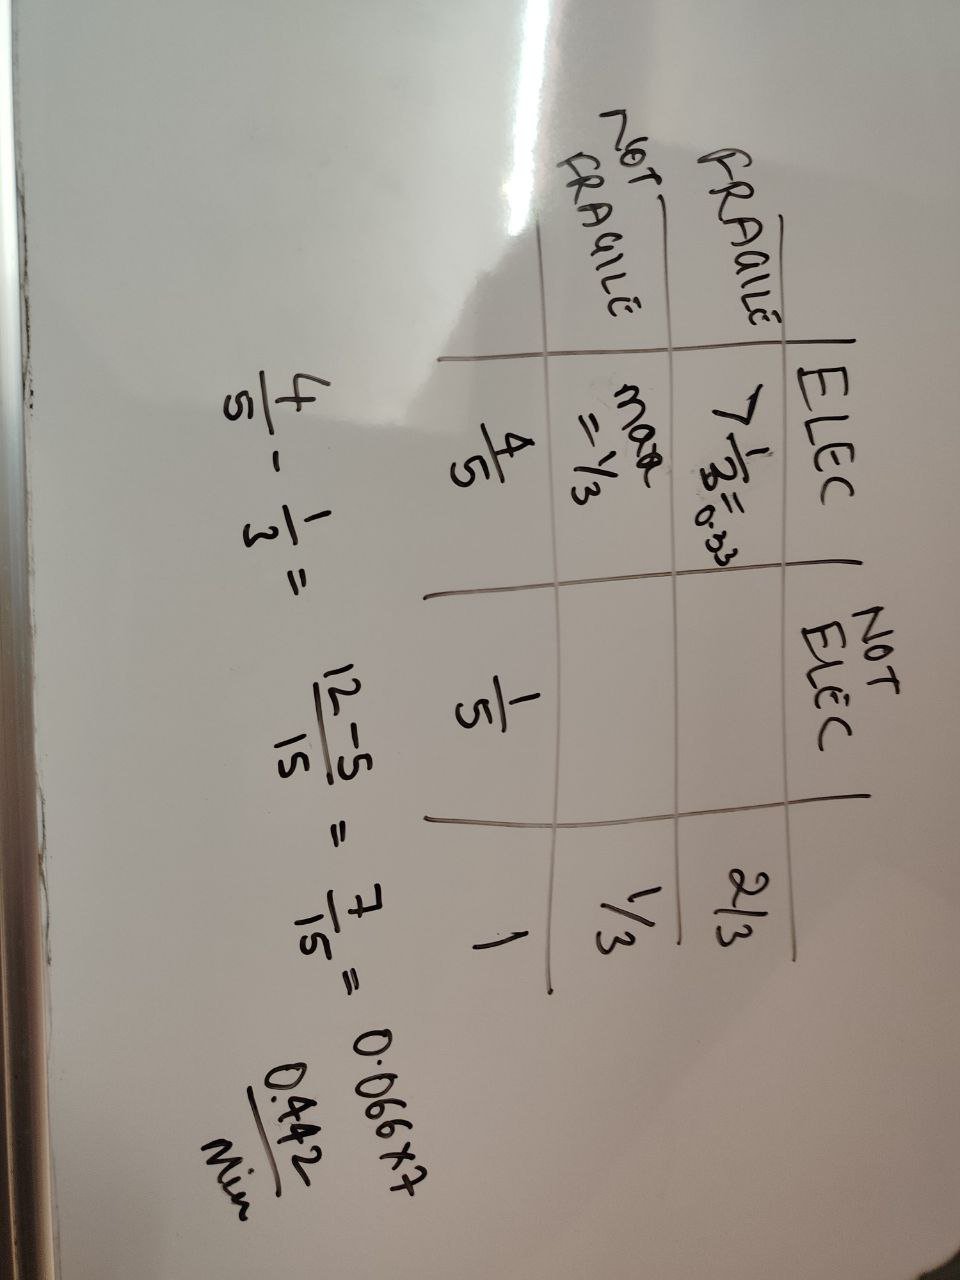 ELEC NOT ELEC
FRAGILE > 1/3 = 0.33 2/3
NOT FRAGILE max = 1/3 1/3
4/5 1/5 1
4/5 - 1/3 = 12-5/15 = 7/15 = 0.066×7
0.442
Min